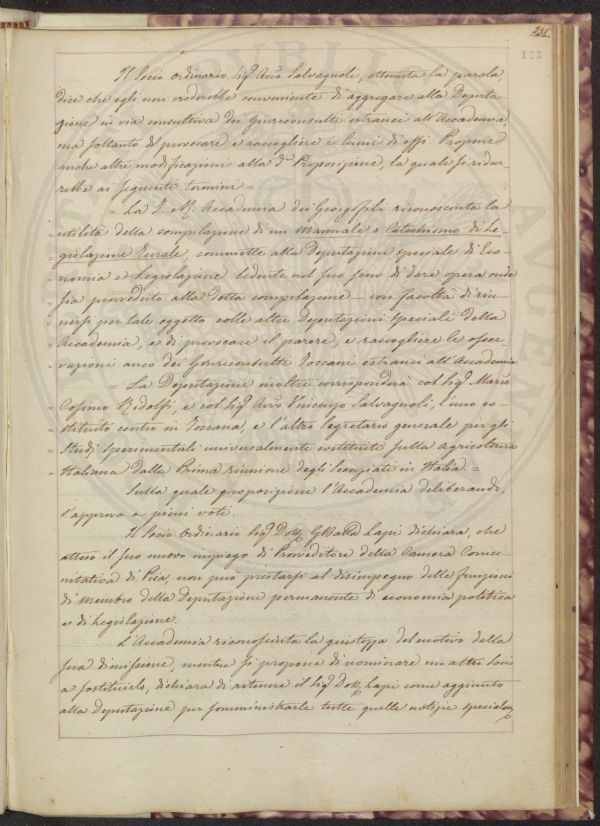 251
123
Il Socio ordinario Sig.r Avv.o Salvagnoli, ottenuta la parola,
dice che egli non crederebbe conveniente d'aggregare alla Deputa-
zione in via consultiva dei Giureconsulti estranei all'Accademia,
ma soltanto di provocare e raccogliere i lumi di essi. Propone
anche altre modificazioni alla d.a Proposizione, la quale si ridur-
rebbe ai seguenti termini =
= La I. e R. Accademia dei Georgofili riconosciuta la
= utilità della compilazione di un Manuale o Catechismo di Le-
= gislazione Rurale, commette alla Deputazione speciale di Eco-
= nomia e Legislazione sedente nel suo seno di dare opera onde
= sia provveduto alla detta compilazione - con facoltà di riu-
= nirsi per tale oggetto colle altre Deputazioni speciali della
= Accademia, e di provocare il parere, e raccogliere le osser-
= vazioni anco dei Giureconsulti Toscani estranei all'Accademia
= La Deputazione inoltre corrisponderà col Sig.r March.
= Cosimo Ridolfi, e col Sig.r Avv.o Vincenzo Salvagnoli, l'uno co-
= stituito centro in Toscana, e l'altro Segretario generale per gli
= Studj Sperimentali universalmente costituiti sulla agricoltura
= Italiana dalla Prima riunione degli Scenziati in Italia. =
Sulla quale proposizione l'Accademia deliberando,
l'approva a pieni voti.
Il Socio Ordinario Sig.r Dott. GBatta Lapi dichiara, che
atteso il suo nuovo impiego di Provveditore della Camera Comu-
nitativa di Pisa, non può prestarsi al disimpegno delle funzioni
di Membro della Deputazione permanente di economia politica
e di Legislazione.
L'Accademia riconosciuta la giustezza del motivo della
sua dimissione, mentre si propone di nominare un altro Socio
a sostituirlo, dichiara di ritenere il Sig.r Dott. Lapi come aggiunto
alla Deputazione per somministrarle tutte quelle notizie speciali